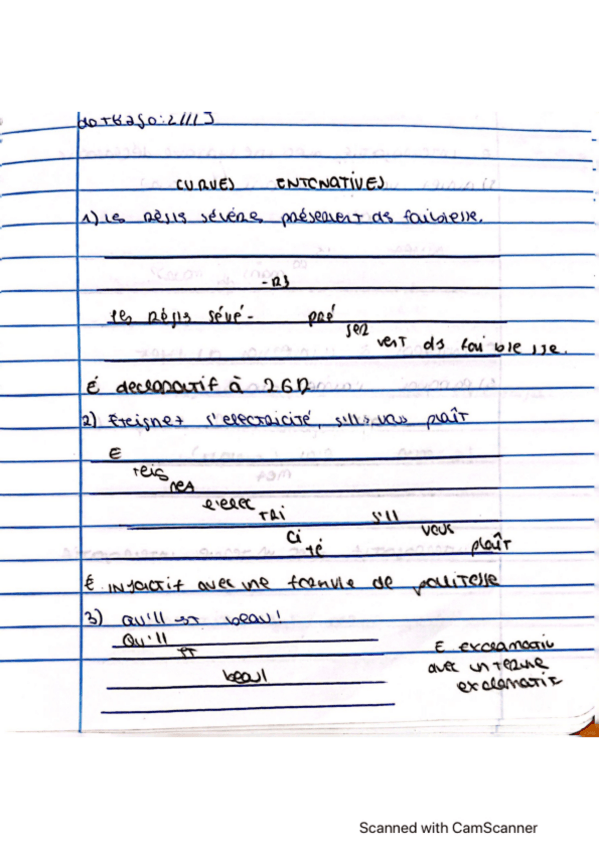 CURVES INTONATIVES
1) Les Régis sévère présement ds faiblesse.
- RS
les Régis sévé- pré
ser
vent ds fai ble sse.
É declaratif à 2GR
2) Eteignez l'electricité, s'il vous plaît
E
teig
nez
l'elec
TRI s'il
ci vous
té plaît
É injoctif avec une formule de politesse
3) Qu'il est beau!
Qu'il
est
beau!
E exclamatif
avec un terme
exclamatif
Scanned with CamScanner